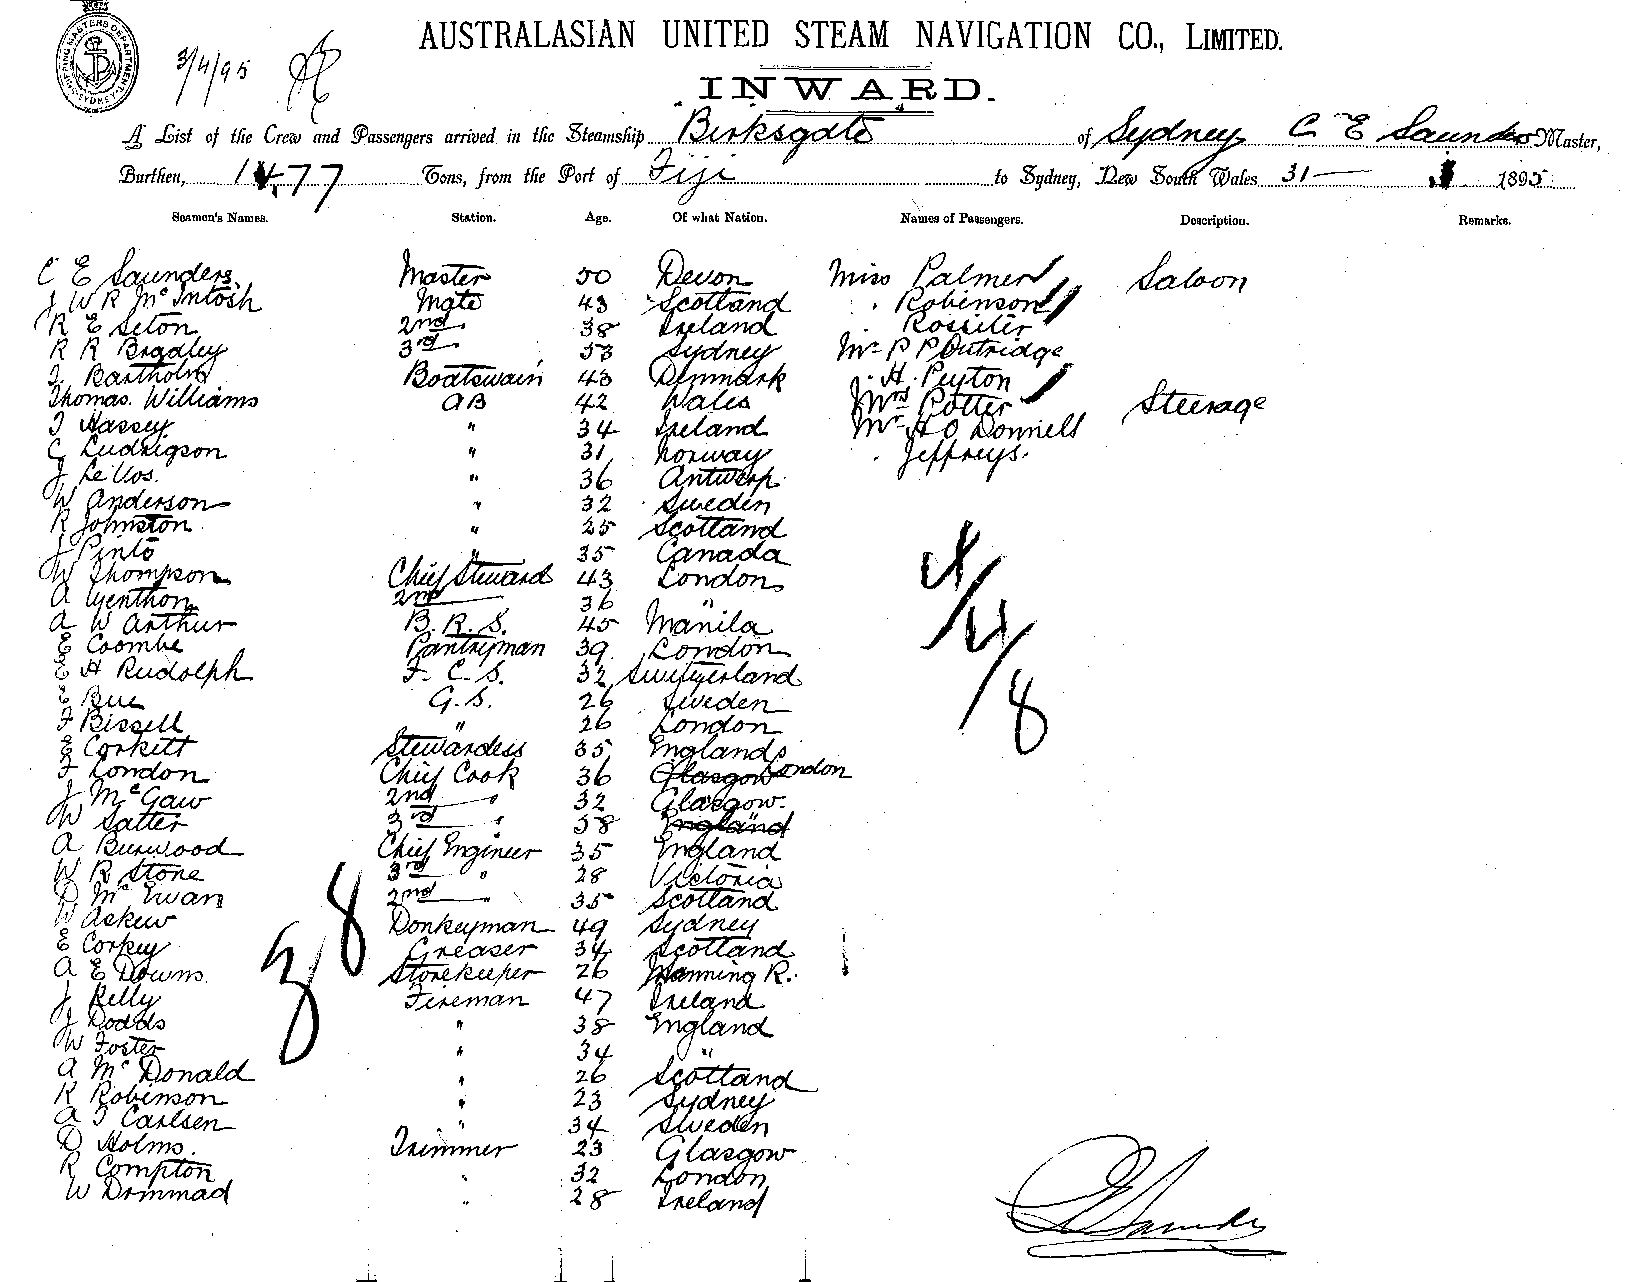 3/4/95
AUSTRALASIAN UNITED STEAM NAVIGATION CO., LIMITED.
INWARD.
A List of the Crew and Passengers arrived in the Steamship Birksgate of Sydney C E Saunders Master,
Burthen, 1477 Tons, from the Port of Fiji to Sydney, New South Wales 31 — 1895
Seamen's Names. Station. Age. Of what Nation. Names of Passengers. Description. Remarks.
C E Saunders Master 50 Devon Miss Palmer Saloon
J W R McIntosh Mate 43 Scotland . Robinson
R E Seton 2nd 38 Ireland . Rossiter
R R Bradley 3rd 53 Sydney Mr P P Outridge
J Bartholm Boatswain 43 Denmark . H Peyton
Thomas Williams AB 42 Wales Mrs Potter Steerage
J Hassey " 34 Ireland Mr H O Donnell
C Ludrigson " 31 Norway . Jeffreys.
J " 36 Antwerp
W Anderson " 32 Sweden
R Johnston " 25 Scotland
J Pinto " 35 Canada
W Thompson Chief Steward 43 London
A Genthon 2nd 36 "
A W Arthur B. R. S. 45 Manila
E Coombe Pantryman 39 London
E H Rudolph F. C. S. 32 Switzerland
E Bue G.S. 26 Sweden
F Bissell " 26 London
E Corkett Stewardess 35 England
F London Chief Cook 36 Glasgow London
J McGaw 2nd " 32 Glasgow.
W Satter 3rd " 58 England
A Burwood Chief Engineer 35 England
W R Stone 3rd " 28 Victoria
D McEwan 2nd " 35 Scotland
W Askew Donkeyman 49 Sydney
E Corkey Greaser 34 Scotland
A E Downs Storekeeper 26 Manning R.
J Kelly Fireman 47 Ireland
J Dodds " 38 England
W Foster " 34 "
A McDonald " 26 Scotland
R Robinson " 23 Sydney
A T Carlsen " 34 Sweden
D Holms. Trimmer 23 Glasgow
R Compton " 32 London
W Drmmad " 28 Ireland
38
8